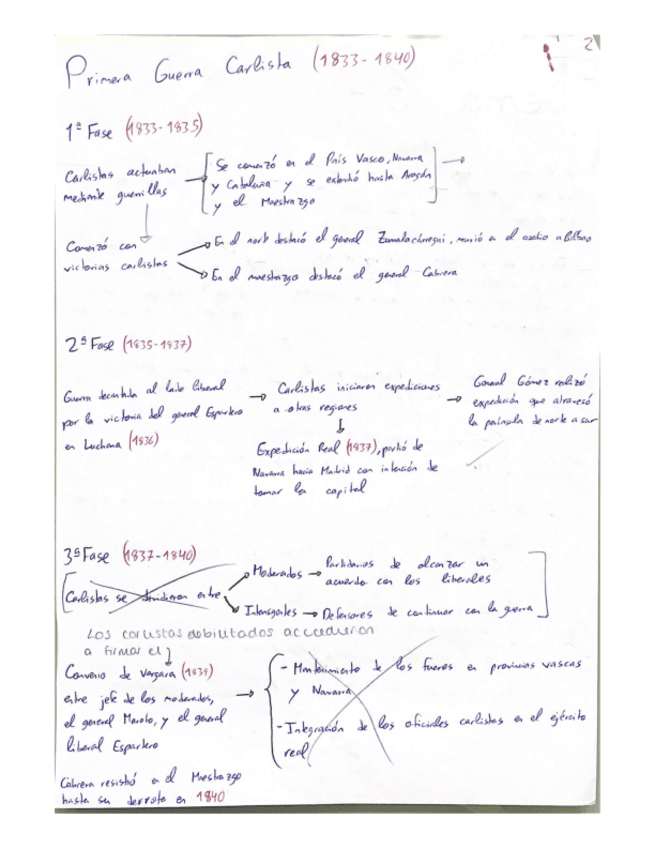 2
Primera Guerra Carlista (1833-1840)
1ª Fase (1833-1835)
Carlistas actuaban
mediante guerrillas
Se comenzó en el País Vasco, Navarra
y Cataluña y se extendió hasta Aragón
y el Maestrazgo
Comenzó con
victorias carlistas
En el norte destacó el general Zumalacárregui, murió en el asedio a Bilbao
En el maestrazgo destacó el general Cabrera
2ª Fase (1835-1837)
Guerra decantada al lado liberal
por la victoria del general Espartero
en Luchana (1836)
Carlistas iniciaron expediciones
a otras regiones
General Gómez realizó
expedición que atravesó
la península de norte a sur
Expedición Real (1837), partió de
Navarra hacia Madrid con intención de
tomar la capital
3ª Fase (1837-1840)
Carlistas se dividieron entre
Moderados
Partidarios de alcanzar un
acuerdo con los liberales
Intransigentes
Defensores de continuar con la guerra
Los carlistas debilitados accedieron
a firmar el
Convenio de Vergara (1839)
entre jefe de los moderados,
el general Maroto, y el general
liberal Espartero
- Mantenimiento de los fueros en provincias vascas
y Navarra
- Integración de los oficiales carlistas en el ejército
real
Cabrera resistió en el Maestrazgo
hasta su derrota en 1840